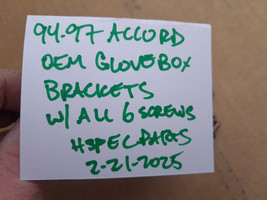 94-97 ACCORD
OEM GLOVEBOX
BRACKETS
W/ ALL 6 SCREWS
HSPEC PARTS
2-21-2025